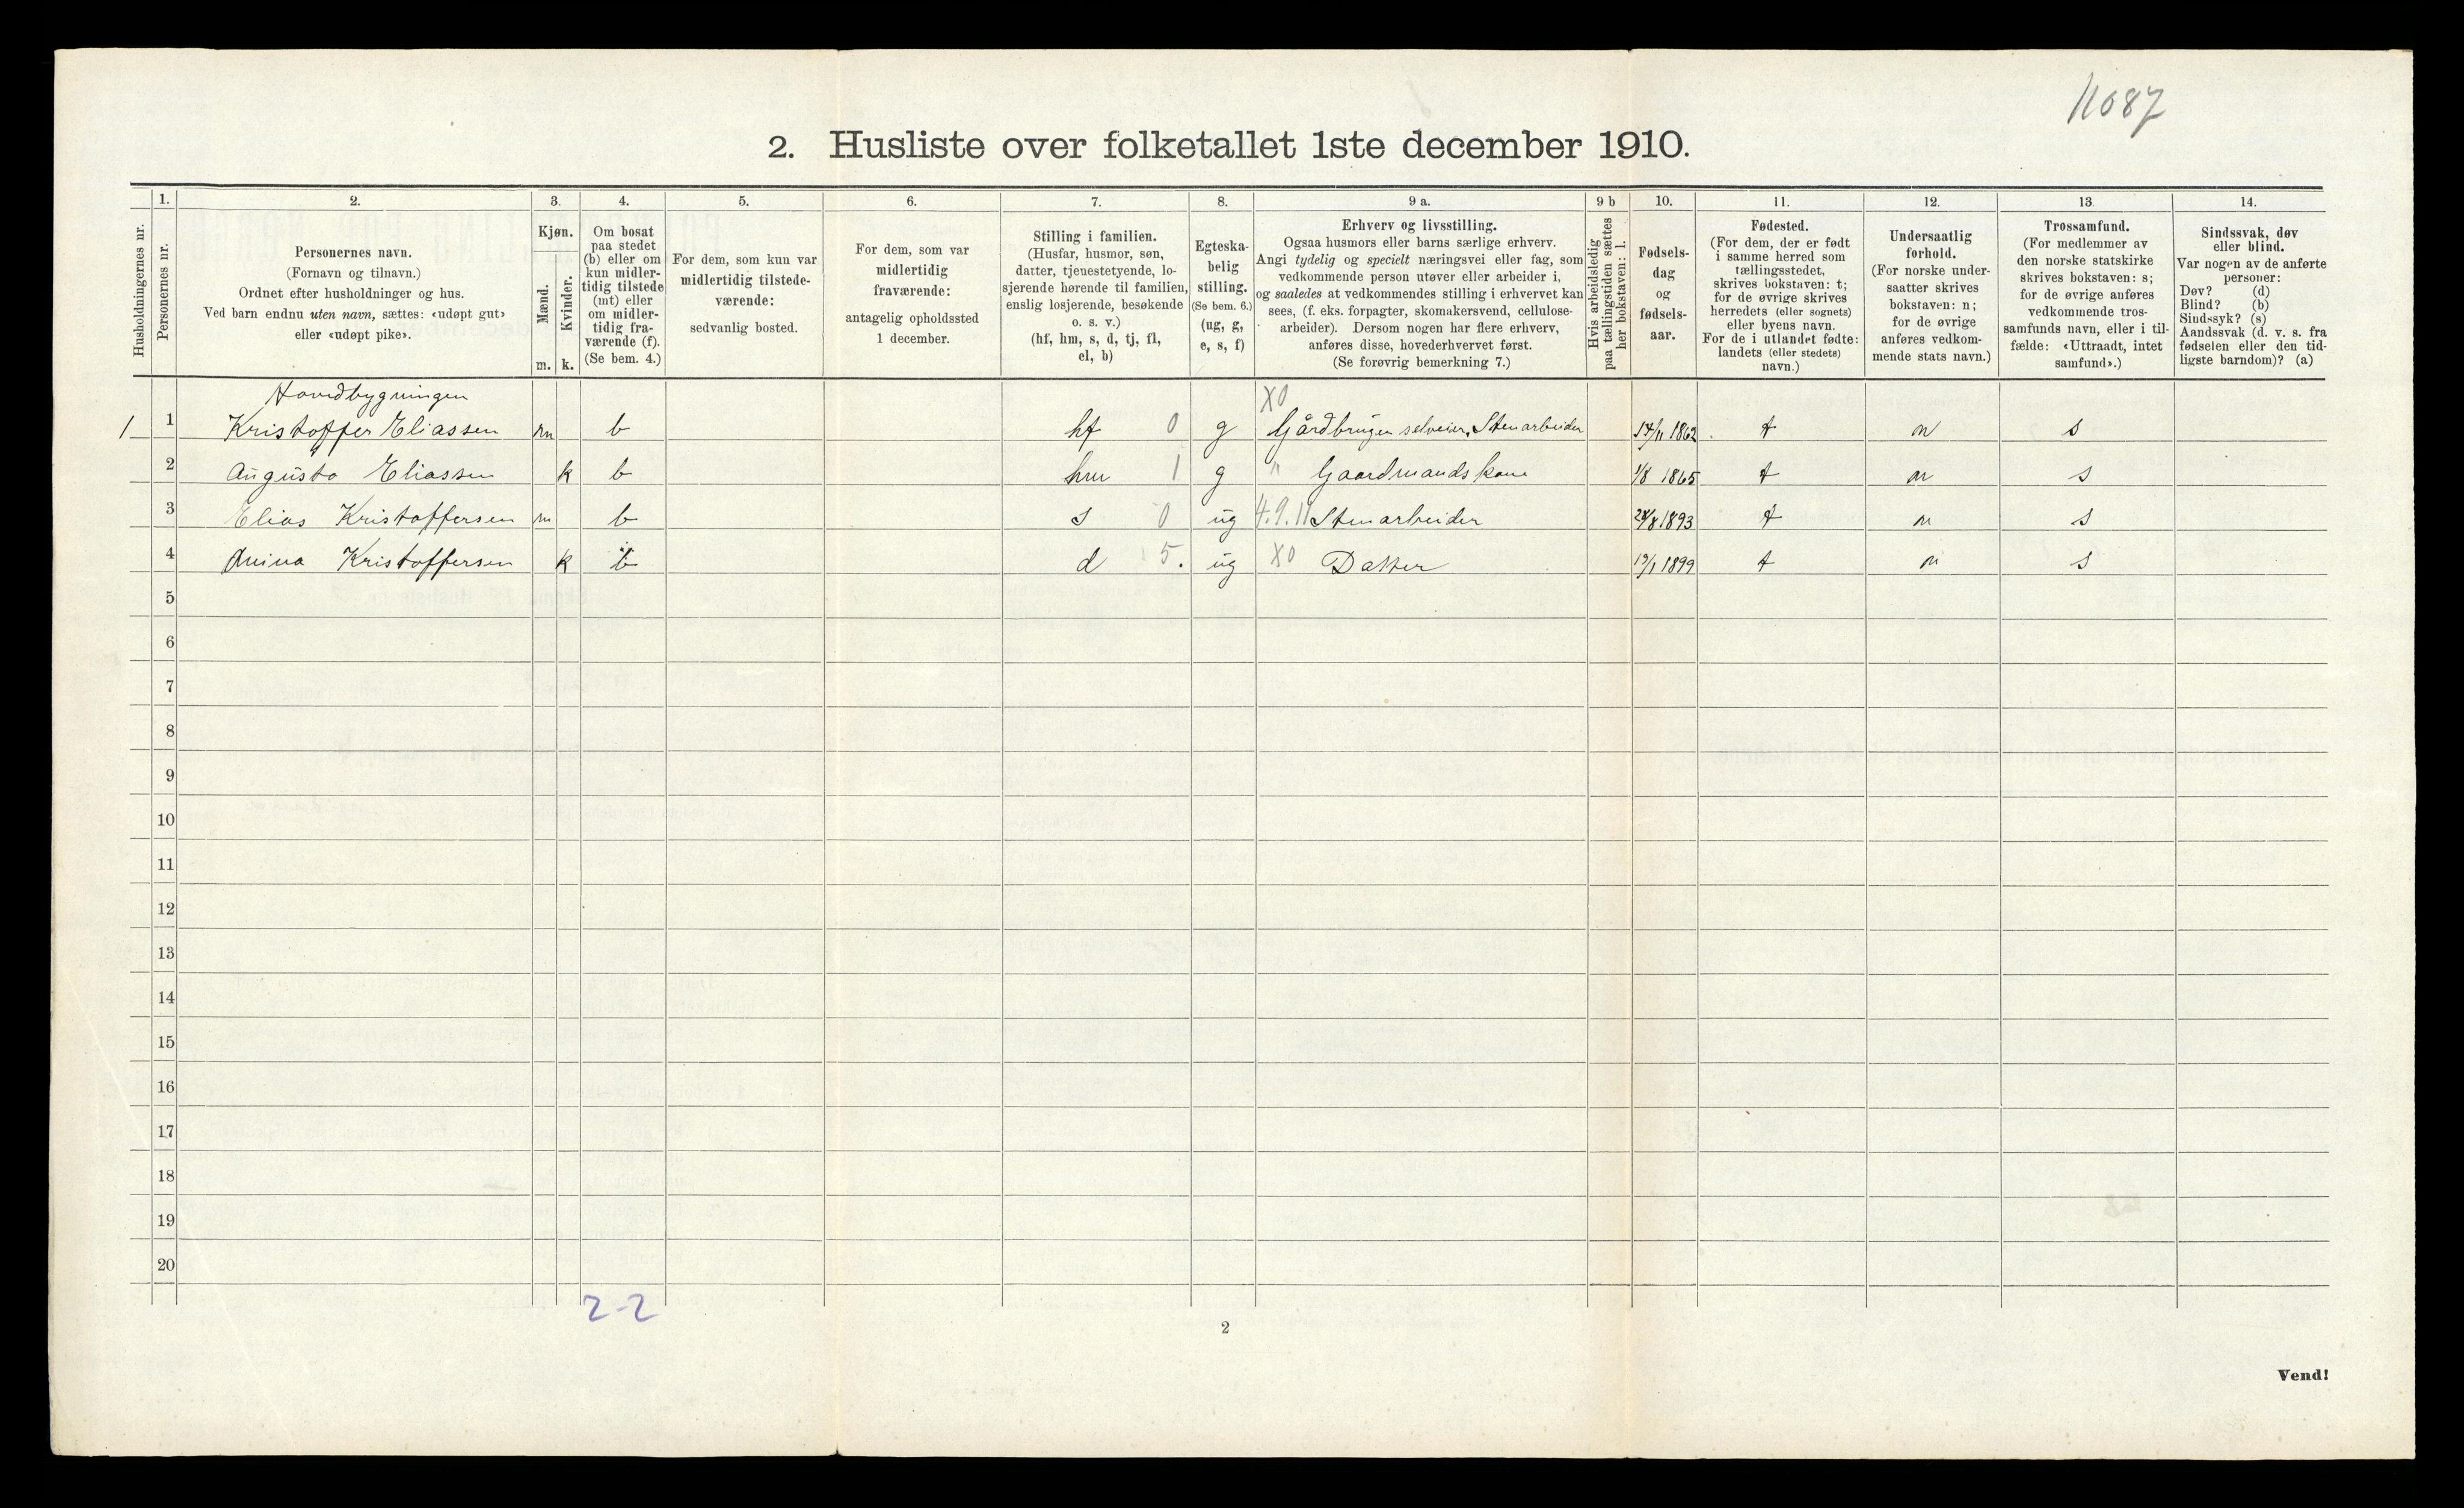 11087
2. Husliste over folketallet 1ste december 1910.
1. 2. 3. 4. 5. 6. 7. 8. 9 a. 9 b 10. 11. 12. 13. 14.
Husholdningernes nr.
Personernes nr.
Personernes navn.
(Fornavn og tilnavn.)
Ordnet efter husholdninger og hus.
Ved barn endnu uten navn, sættes: «udøpt gut»
eller «udøpt pike».
Kjøn.
Mænd.
Kvinder.
m. k.
Om bosat
paa stedet
(b) eller om
kun midler-
tidig tilstede
(mt) eller
om midler-
tidig fra-
værende (f).
(Se bem. 4.)
For dem, som kun var
midlertidig tilstede-
værende:
sedvanlig bosted.
For dem, som var
midlertidig
fraværende:
antagelig opholdssted
1 december.
Stilling i familien.
(Husfar, husmor, søn,
datter, tjenestetyende, lo-
sjerende hørende til familien,
enslig losjerende, besøkende
o. s. v.)
(hf, hm, s, d, tj, fl,
el, b)
Egteska-
belig
stilling.
(Se bem. 6.)
(ug, g,
e, s, f)
Erhverv og livsstilling.
Ogsaa husmors eller barns særlige erhverv.
Angi tydelig og specielt næringsvei eller fag, som
vedkommende person utøver eller arbeider i,
og saaledes at vedkommendes stilling i erhvervet kan
sees, (f. eks. forpagter, skomakersvend, cellulose-
arbeider). Dersom nogen har flere erhverv,
anføres disse, hovederhvervet først.
(Se forøvrig bemerkning 7.)
Hvis arbeidsledig
paa tællingstiden sættes
her bokstaven: l.
Fødsels-
dag
og
fødsels-
aar.
Fødested.
(For dem, der er født
i samme herred som
tællingsstedet,
skrives bokstaven: t;
for de øvrige skrives
herredets (eller sognets)
eller byens navn.
For de i utlandet fødte:
landets (eller stedets)
navn.)
Undersaatlig
forhold.
(For norske under-
saatter skrives
bokstaven: n;
for de øvrige
anføres vedkom-
mende stats navn.)
Trossamfund.
(For medlemmer av
den norske statskirke
skrives bokstaven: s;
for de øvrige anføres
vedkommende tros-
samfunds navn, eller i til-
fælde: «Uttraadt, intet
samfund».)
Sindssvak, døv
eller blind.
Var nogen av de anførte
personer:
Døv? (d)
Blind? (b)
Sindssyk? (s)
Aandssvak (d. v. s. fra
fødselen eller den tid-
ligste barndom)? (a)
Hovedbygningen X0
1 1 Kristoffer Eliassen m b hf 0 g Gårdbruger selveier, Stenarbeider 14/11 1862 t n s
2 Augusta Eliassen k b hm 1 g " Gaardmandskone 1/8 1865 t n s
3 Elias Kristoffersen m b s 0 ug 4.9.11 Stenarbeider 1893 t n s
4 Kristoffersen k b d 5. ug X0 Datter 1899 t n s
5
6
7
8
9
10
11
12
13
14
15
16
17
18
19
20
2-2
2
Vend!